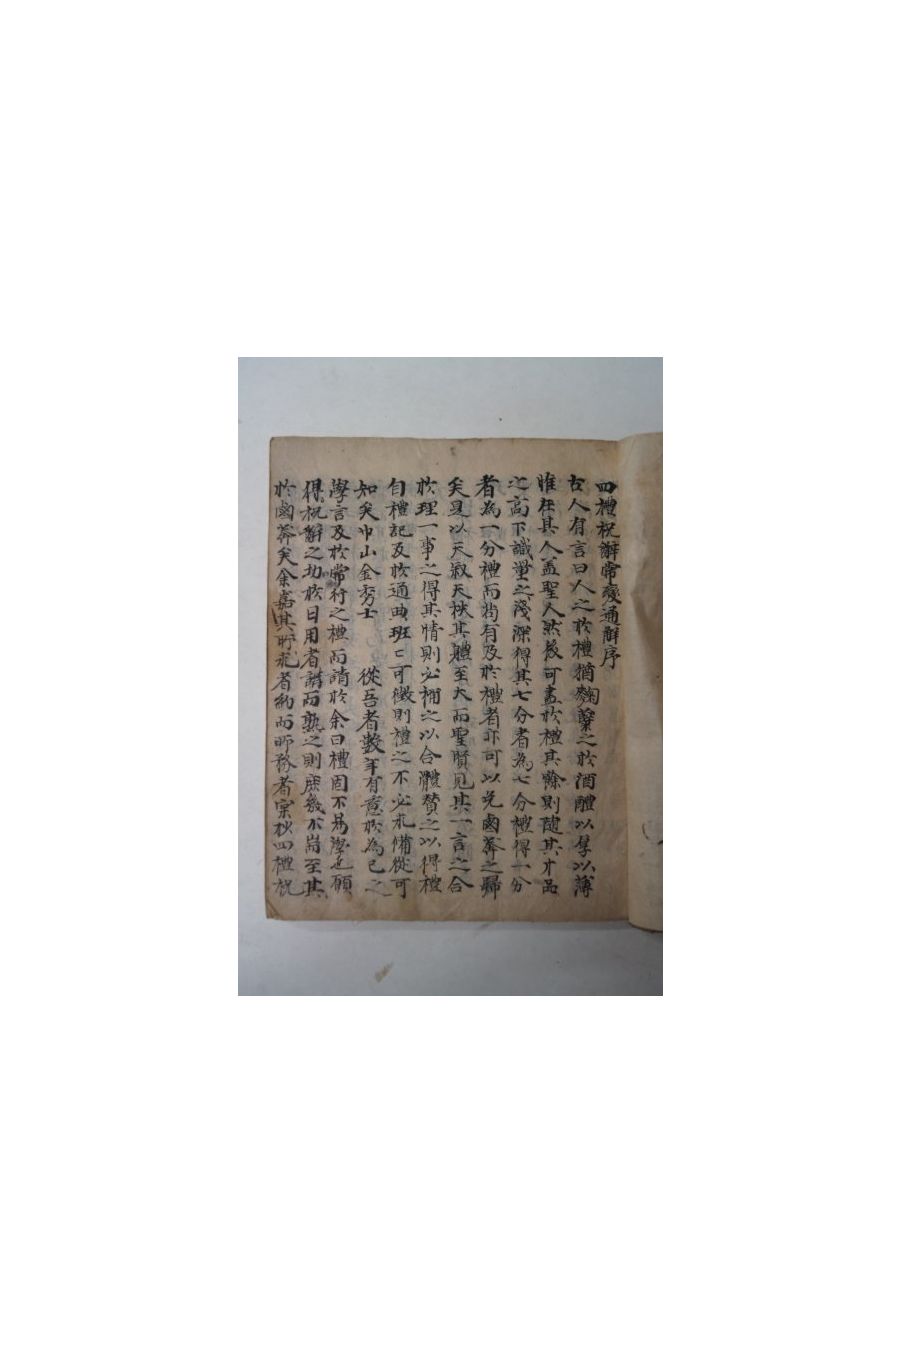 四禮祝辭常變通解序
古人有言曰人之於禮猶麴糱之於酒醴以厚以薄
惟在其人盖聖人然後可盡於禮其餘則随其才品
之高下識量之淺深得其七分者為七分禮得一分
者為一分禮而尚有及於禮者亦可以免鹵莽之歸
矣是以天叙天秩其軆至大而聖賢見其一言之合
於理一事之得其情則必稱之以合體贊之以得禮
自禮記及於通典班〻可徵則禮之不必求備從可
知矣巾山金 士 從吾者數年有意於為己之
學言及於常行之禮而請於余曰禮固不易學也願
得祝辭之切於日用者講而熟之則庶幾不耑至其
於鹵莽矣余嘉其所求者約而所務者宗抄四禮祝